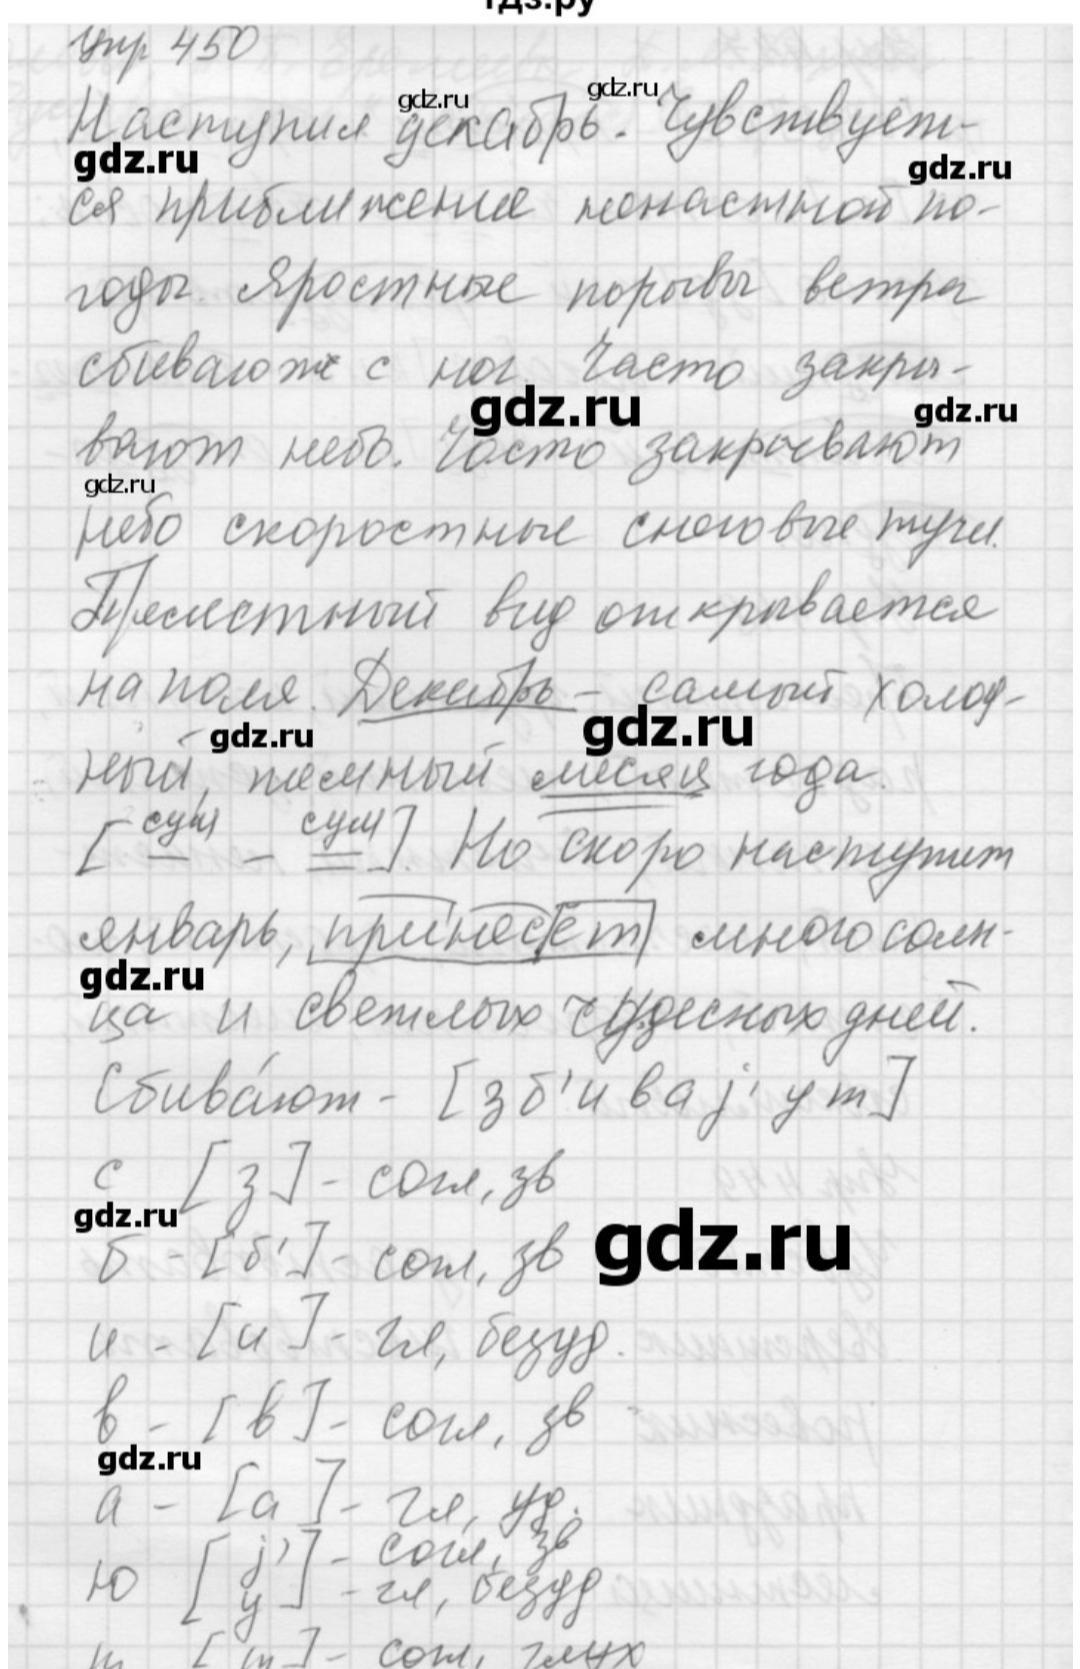 гдз.ру
упр 450
gdz.ru
gdz.ru
Наступил декабрь. Чувствует-
gdz.ru
gdz.ru
ся приближение ненастной по-
годы. Яростные порывы ветра
сбивают с ног. Часто закры-
gdz.ru
gdz.ru
вают небо. Часто закрывают
gdz.ru
небо скоростные снеговые тучи.
Прелестный вид открывается
на поля. Декабрь - самый холод-
gdz.ru
gdz.ru
ный, темный месяц года.
[сущ - сущ]. Но скоро наступит
январь, принесёт много солн-
gdz.ru
ца и светлых чудесных дней.
Сбива́ют - [зб'иваj'ут]
с [з] - согл, зв
gdz.ru
gdz.ru
б - [б'] - согл, зв
и - [и] - гл, безуд.
в - [в] - согл, зв
gdz.ru
а - [а] - гл, уд.
ю [j'] - согл, зв
[у] - гл, безуд
т [т] - согл, глух